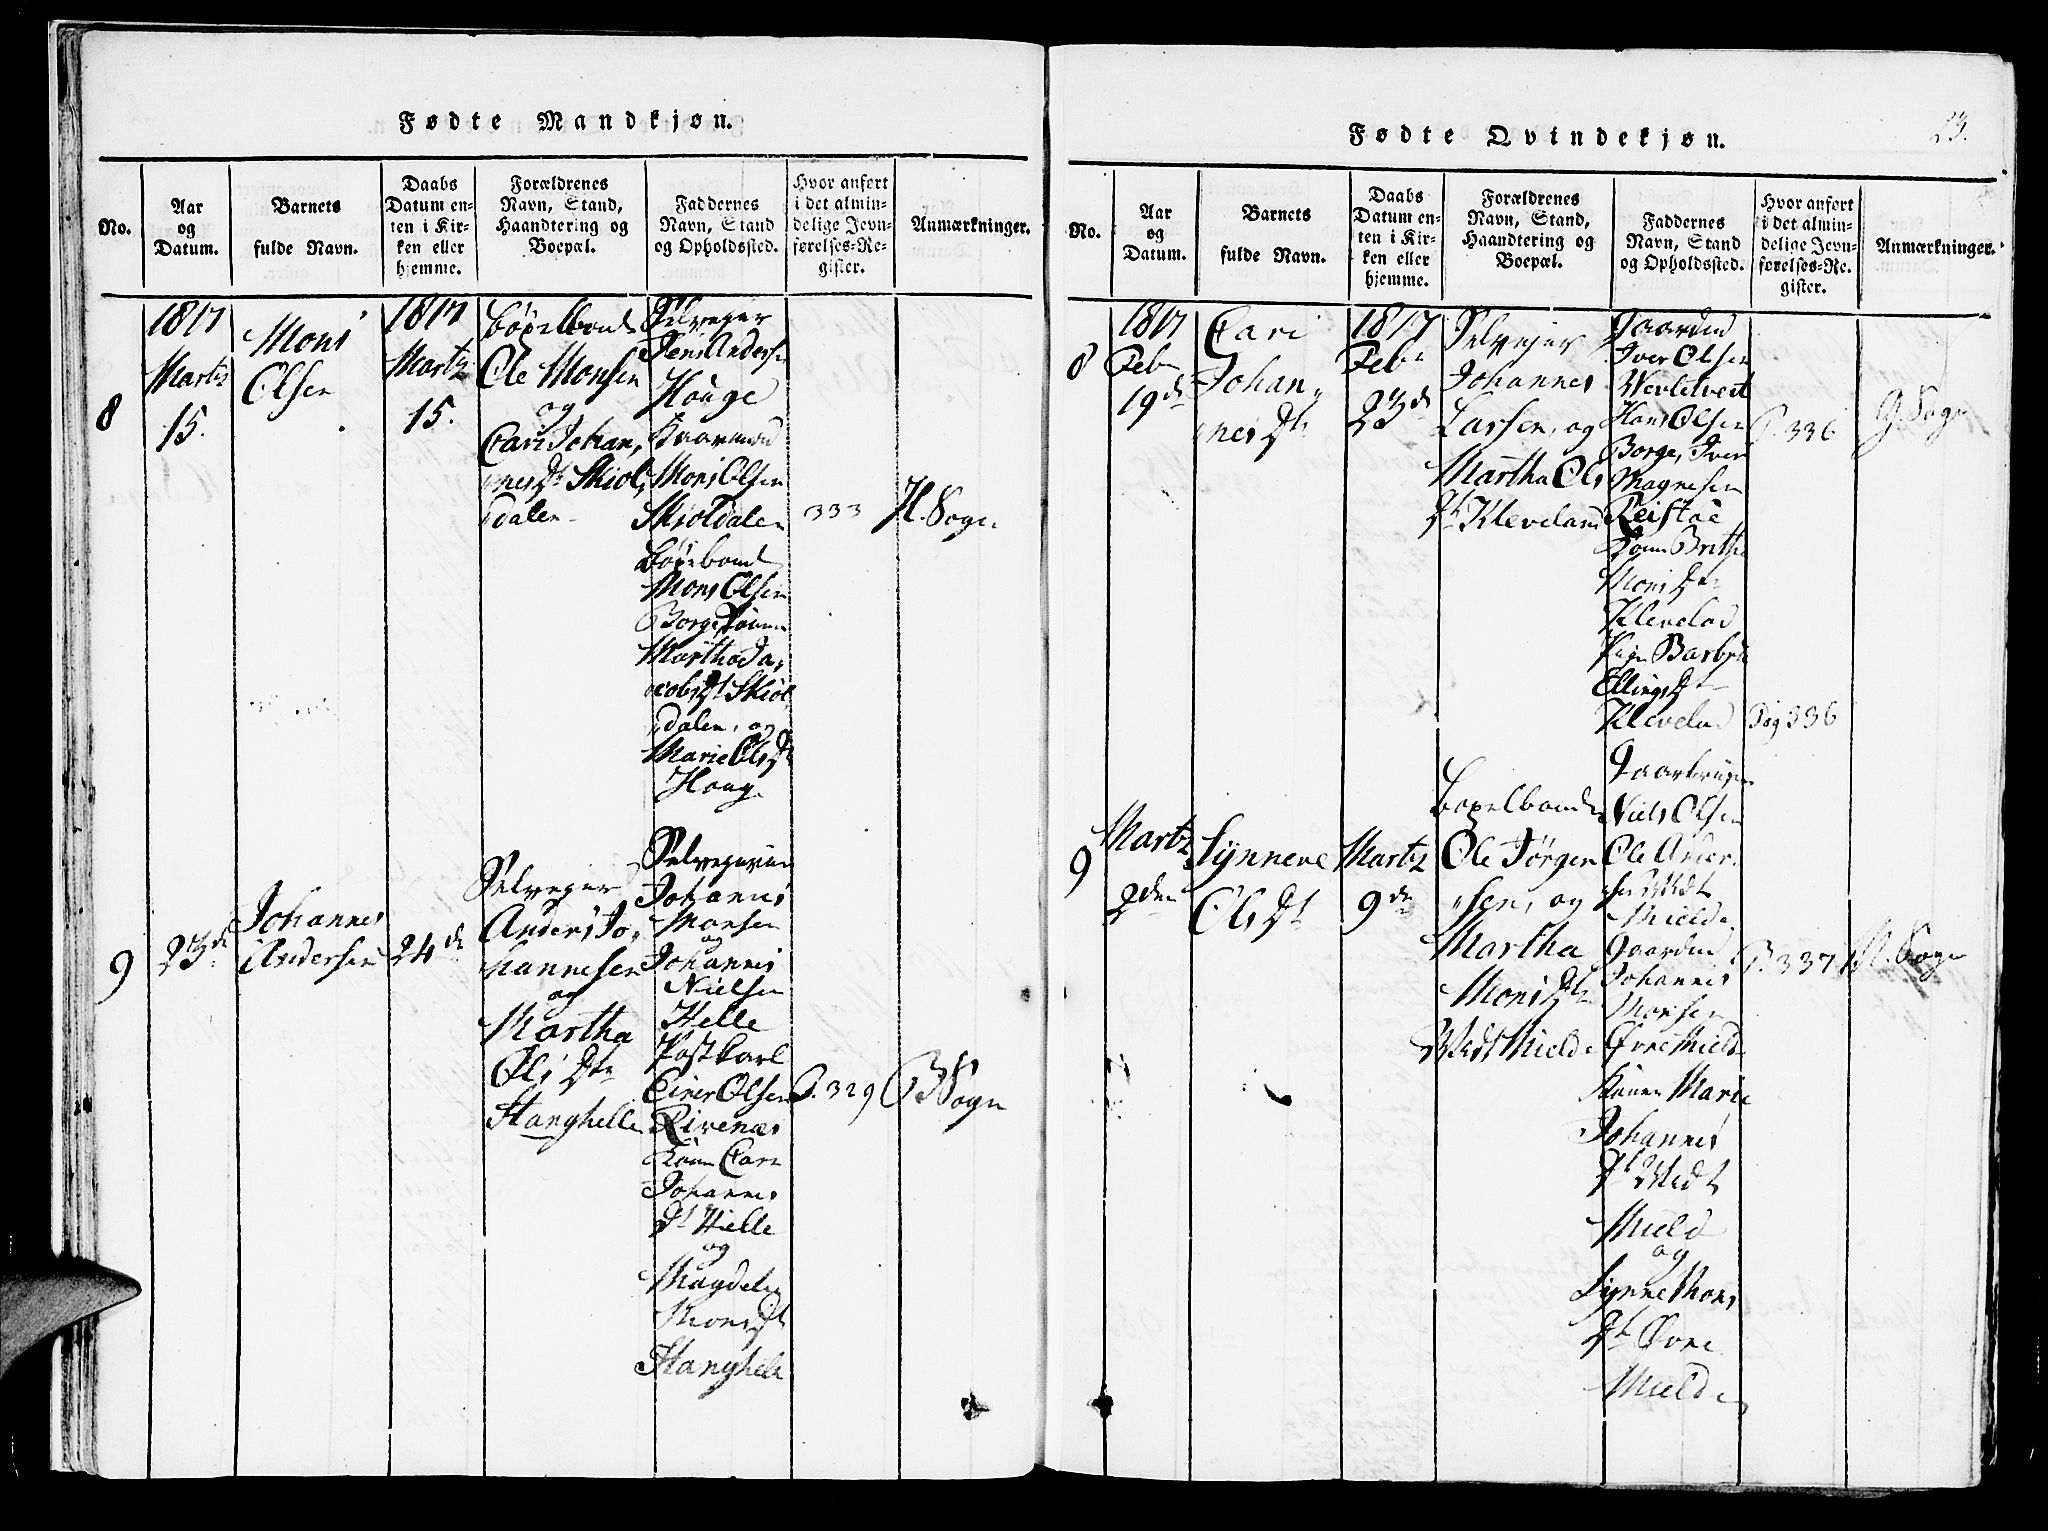 Fødte Mandkjøn.
No.
Aar
og
Datum.
Barnets
fulde Navn.
Daabs
Datum en-
ten i Kir-
ken eller
hjemme.
Forældrenes
Navn, Stand,
Haandtering og
Boepæl.
Faddernes
Navn, Stand
og Opholdssted.
Hvor anført
i det almin-
delige Jevn-
førelses-Re-
gister.
Anmærkninger.
8
1817
Martz
15.
Mons
Olsen
1817
Martz
15.
Ole Monsen
og
Cari Johan„
nes Dtr Skiol„
dalen
Selvejer
Jens Andersen
Houge
Mons Olsen
Skioldalen
Mons Olsen
Borge,
Martha Ja„
cobs Dt Skiol„
dalen, og
Marie Ols Dt
Houg
333
H. Sogn
9
23de
Johannes
Andersen
24de
Selvejer
Anders Jo„
hannesen
og
Martha
Ols Dtr
Stanghelle
Johannes
Monsen
og
Johannes
Nielsen
Helle
Postkarl
Einer Olsen
Rivenæs
Kone Cari
Johannes
Dt Helle
og
Magdele
Mons Dt
Stanghelle
P. 329
B Sogn
23.
Fødte Qvindekjøn.
No.
Aar
og
Datum.
Barnets
fulde Navn.
Daabs
Datum en-
ten i Kir-
ken eller
hjemme.
Forældrenes
Navn, Stand,
Haandtering og
Boepæl.
Faddernes
Navn, Stand
og Opholdssted.
Hvor anført
i det almin-
delige Jevn-
førelses-Re-
gister.
Anmærkninger.
8
1817
Feb
19de
Cari
Johan„
nes Dtr
1817
Feb
23de
Selvejer
Johannes
Larsen, og
Martha Ols
Dt Kleveland
Iver Olsen
Hans Olsen
Borge, Iver
Magnesen
Reistae
Kone Brithe
Mons Dtr
Klevelad
Pige Barbru
Ellings Dtr
Klevelad
P. 336
Pag 336
G. Sogn
9
Martz
2den
Synneve
Ols Dt
Martz
9de
Ole Jørgen
„sen, og
Martha
Mons Dtr
Midt Mielde
Niels Olsen
Ole Ander„
sen Midt
Mielde
Johannes
Monsen
Øvre Mielde
Konen Marie
Johannes
Dt Midt
Mield
og
Synne Mons
Dt Øvre
Mielde
P. 337
H. Sogn